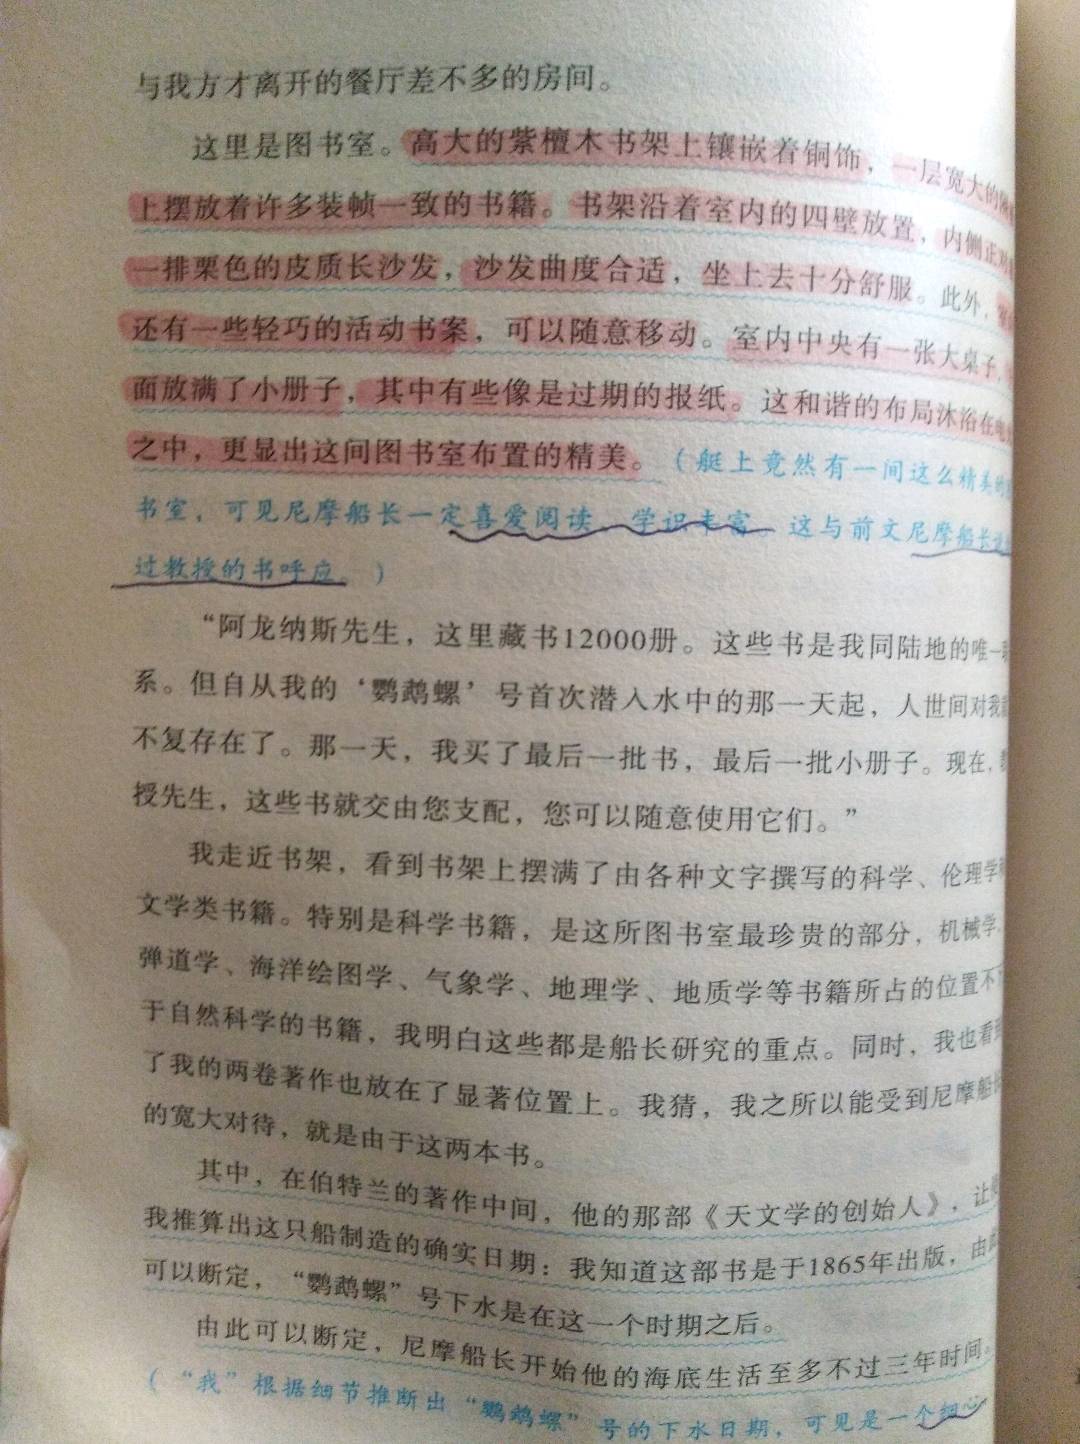 与我方才离开的餐厅差不多的房间。
这里是图书室。高大的紫檀木书架上镶嵌着铜饰，一层宽大的隔
上摆放着许多装帧一致的书籍。书架沿着室内的四壁放置，内侧正对
一排栗色的皮质长沙发，沙发曲度合适，坐上去十分舒服。此外，
还有一些轻巧的活动书案，可以随意移动。室内中央有一张大桌子，
面放满了小册子，其中有些像是过期的报纸。这和谐的布局沐浴在电
之中，更显出这间图书室布置的精美。（艇上竟然有一间这么精美的
书室，可见尼摩船长一定喜爱阅读、学识丰富。这与前文尼摩船长
过教授的书呼应。）
“阿龙纳斯先生，这里藏书12000册。这些书是我同陆地的唯一
系。但自从我的‘鹦鹉螺’号首次潜入水中的那一天起，人世间对我
不复存在了。那一天，我买了最后一批书，最后一批小册子。现在，
授先生，这些书就交由您支配，您可以随意使用它们。”
我走近书架，看到书架上摆满了由各种文字撰写的科学、伦理学
文学类书籍。特别是科学书籍，是这所图书室最珍贵的部分，机械学、
弹道学、海洋绘图学、气象学、地理学、地质学等书籍所占的位置不
于自然科学的书籍，我明白这些都是船长研究的重点。同时，我也看到
了我的两卷著作也放在了显著位置上。我猜，我之所以能受到尼摩船长
的宽大对待，就是由于这两本书。
其中，在伯特兰的著作中间，他的那部《天文学的创始人》，让
我推算出这只船制造的确实日期：我知道这部书是于1865年出版，由
可以断定，“鹦鹉螺”号下水是在这一个时期之后。
由此可以断定，尼摩船长开始他的海底生活至多不过三年时间。
（“我”根据细节推断出“鹦鹉螺”号的下水日期，可见是一个细心